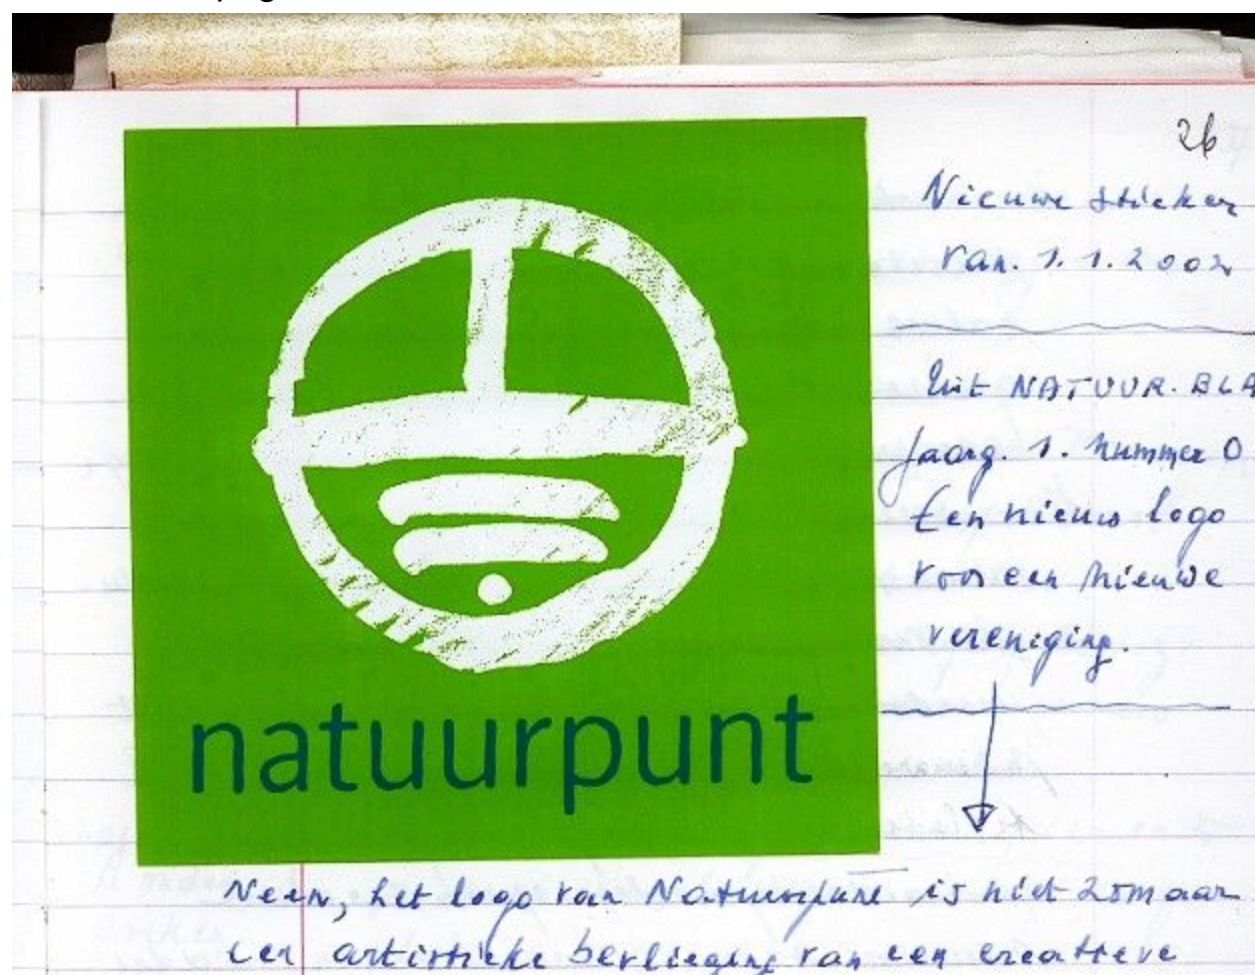 26
Nieuwe sticker
van. 1.1.2002
Uit NATUUR.BLA
Jaarg. 1. nummer 0
Een nieuw logo
voor een nieuwe
vereniging.
natuurpunt
Neen, het logo van Natuurpunt is niet zomaar
een artistieke bevlieging van een creatieve